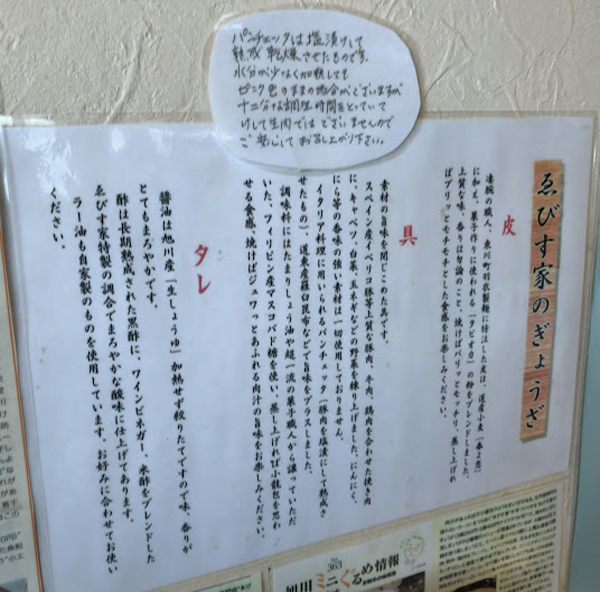 パンチェッタは塩漬けして
熟成乾燥させたものです。
水分が少なく加熱しても
ピンク色のままの場合がございますが
十二分な調理時間をとっていて
けして生肉ではございませんので
ご安心してお召し上がり下さい。
ゑびす家のぎょうざ
皮
凄腕の職人、東川町羽衣製麺に特注した皮は、道産小麦(春よ恋)
に加え、菓子作りに使われる「タピオカ」の粉をブレンドしました、
上質な味、香りは勿論のこと、焼けばパリッとモッチリ、蒸しあげれ
ばプリッとモチモチとした食感をお楽しみください。
具
素材の旨味を閉じこめた具です。
スペイン産イベリコ豚等上質な豚肉、牛肉、鶏肉を合わせた挽き肉
に、キャベツ、白菜、玉ネギなどの野菜を練り上げました、にんにく、
にら等の香味の強い素材は一切使用しておりません。
イタリア料理に用いられるパンチェッタ(豚肉を塩漬にして熟成さ
せたもの)、道東産羅臼昆布などで旨味をプラスしました。
調味料にはたまりしょう油や超一流の菓子職人から譲っていただ
いた、フィリピン産マスコバド糖を使い、蒸しあげれば小籠包を思わ
せる食感、焼けばジュワッとあふれる肉汁の旨味をお楽しみください、
タレ
醤油は旭川産「生しょうゆ」加熱せず絞りたてですので味、香りが
とてもまろやかです。
酢は長期熟成された黒酢に、ワインビネガー、米酢をブレンドした
ゑびす家特製の調合でまろやかな酸味に仕上げてあります。
ラー油も自家製のものを使用しています。お好みに合わせてお使い
ください。
363
旭川ミニぐるめ情報